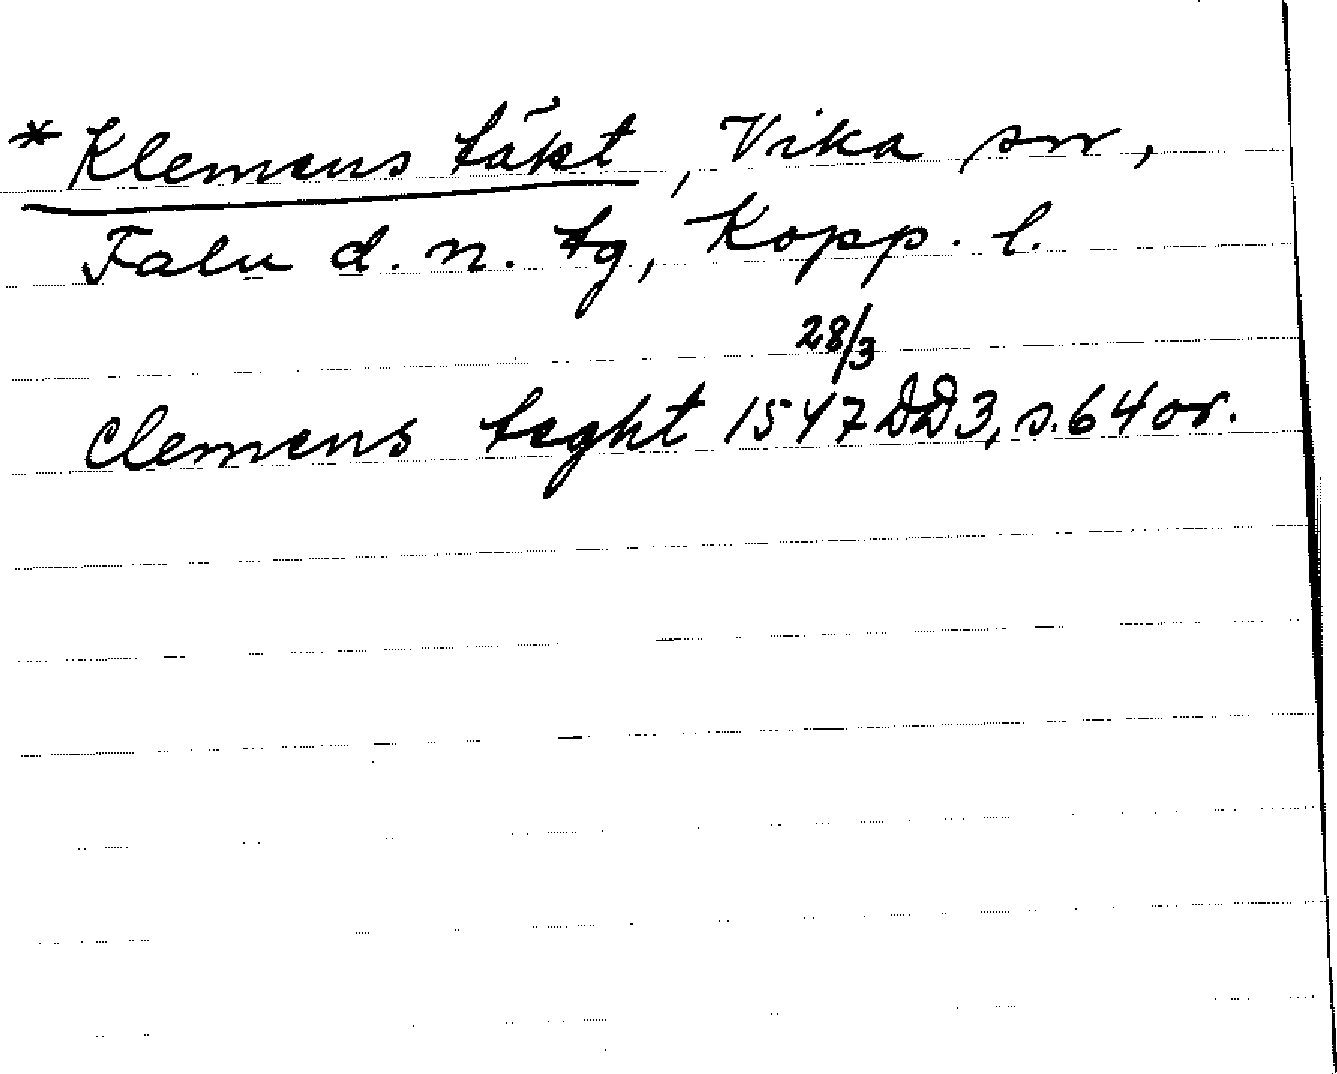 *Klemens täkt, Vika sn,
Falu d. n. tg, Kopp. l.
28/3
Clemens teght 1547 DD3, s. 64 or.